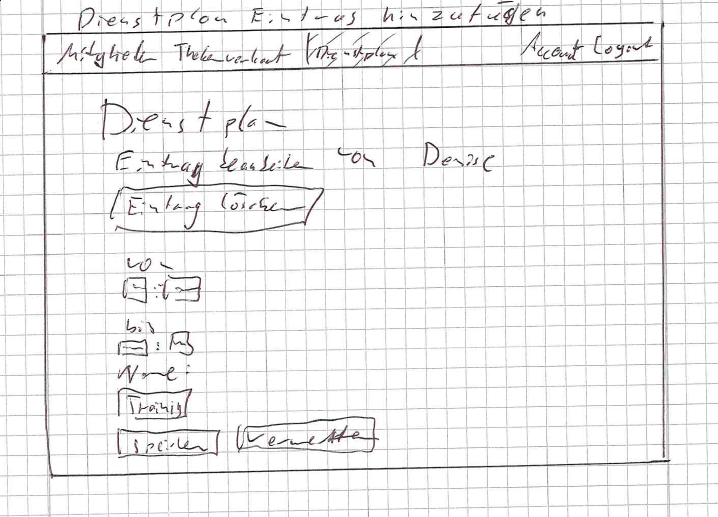 Dienstplan Eintrag hinzufügen
Mitglieder Thekenverkauf Dienstplan Account Logout
Dienstplan
Eintrag bearbeiten von Denise
Eintrag löschen
von
:
bis
:
Name:
Training
speichern Verwerfen